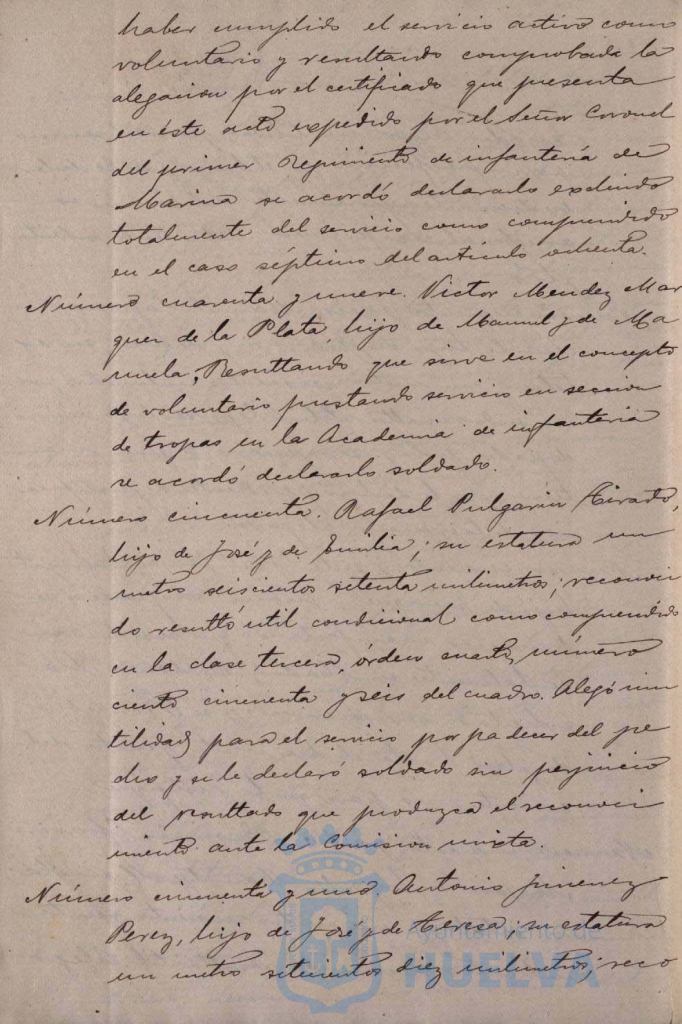 haber cumplido el servicio activo como
voluntario y resultando comprobada la
alegacion por el certificado que presenta
en éste acto expedido por el Señor Coronel
del primer Regimiento de infantería de
Marina se acordó declararlo excluido
totalmente del servicio como comprendido
en el caso séptimo del artículo ochenta.
Número cuarenta y nueve. Victor Mendez Mar
quez de la Plata, hijo de Manuel y de Ma
nuela, Resultando que sirve en el concepto
de voluntario prestando servicio en seccion
de tropas en la Academia de infanteria
se acordó declararlo soldado.
Número cincuenta. Rafael Pulgarin Tirado,
hijo de José y de Emilia; su estatura un
metro seiscientos setenta milimetros; reconoci
do resultó útil condicional como comprendido
en la clase tercera, órden cuarto, número
ciento cincuenta y seis del cuadro. Alegó inu
tilidad para el servicio por padecer del pe
cho y se le declaró soldado sin perjuicio
del resultado que produzca el reconoci
miento ante la Comision mixta.
Número cincuenta y uno. Antonio Jimenez
Perez, hijo de José y de Teresa; su estatura
un metro setecientos diez milimetros; reco
Ayuntamiento de
HUELVA